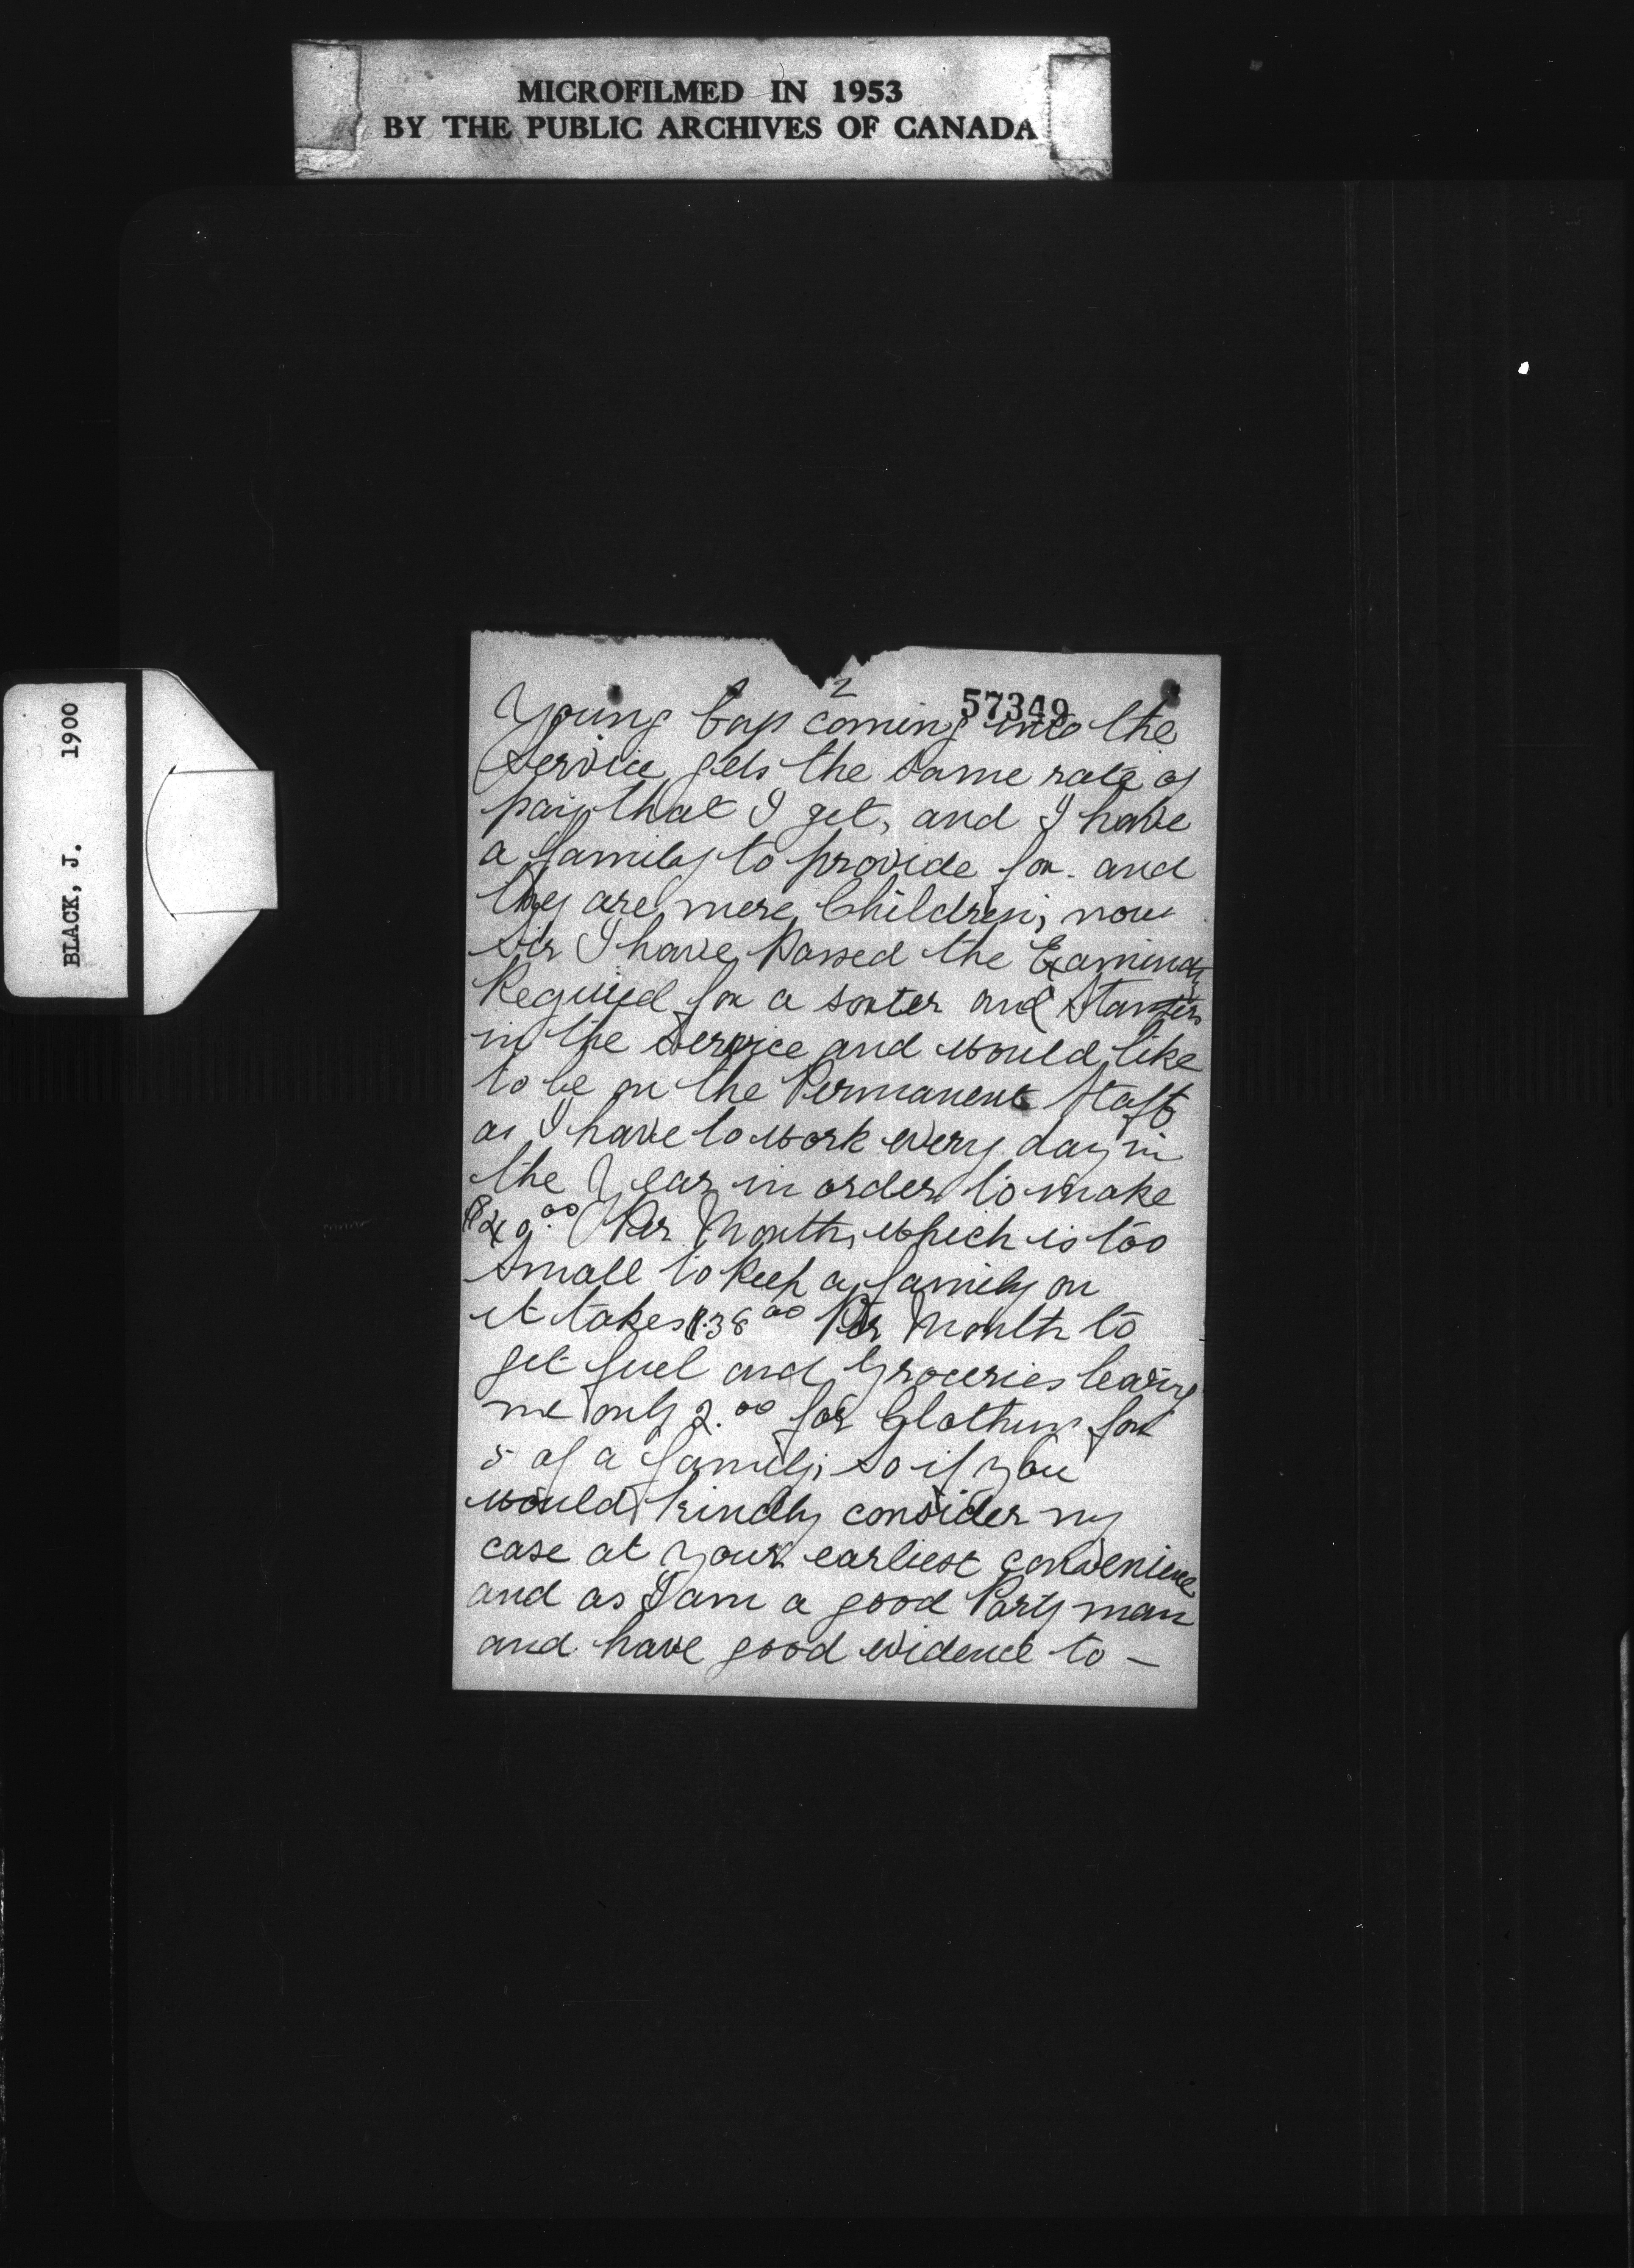 MICROFILMED IN 1953
BY THE PUBLIC ARCHIVES OF CANADA
BLACK, J. 1900
2
57349
Young boys coming into the
Service gets the same rate of
pay that I get, and I have
a family to provide for. and
they are mere Children; now
Sir I have passed the
Required for a sorter and
in the Service and would like
to be on the Permanent Staff
as I have to work every day in
the Year in order to make
$40.00 Per Month, which is too
small to keep a family on
it takes $38 00 Per Month to
get fuel and Groceries leaving
me only 2.00 for Clothing for
5 of a family; so if you
would kindly consider my
case at your earliest convenience
and as I am a good Party man
and have good evidence to —